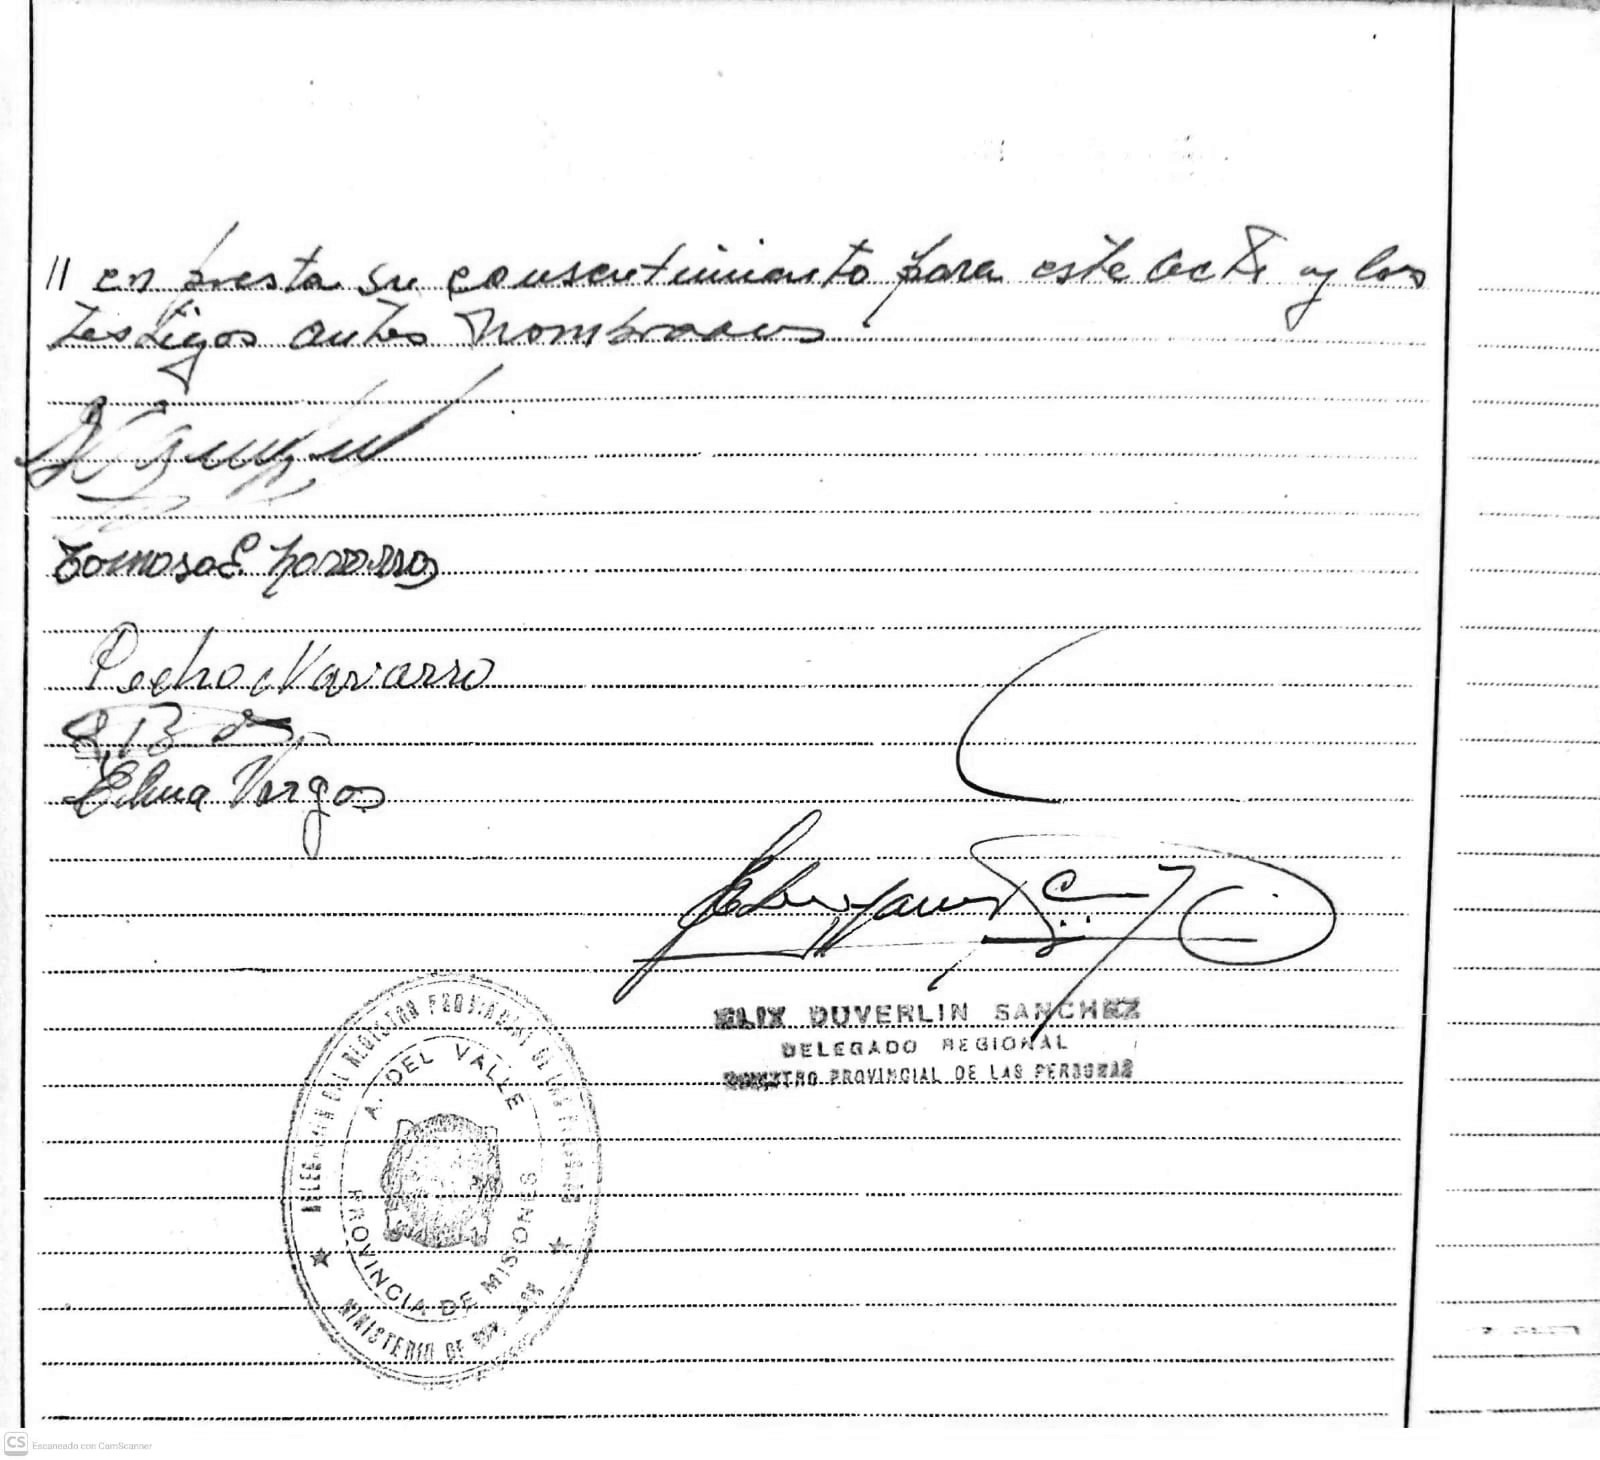 // en presta su consentimiento para este acto y los
testigos antes nombrados.
Tomasa E. Navarro
Pedro Navarro
Elena Vargas
ELIX DUVERLIN SANCHEZ
DELEGADO REGIONAL
REGISTRO PROVINCIAL DE LAS PERSONAS
REGISTRO PROVINCIAL DE LAS
A. DEL VALLE
PROVINCIA DE MISIONES
MINISTERIO DE
CS Escaneado con CamScanner